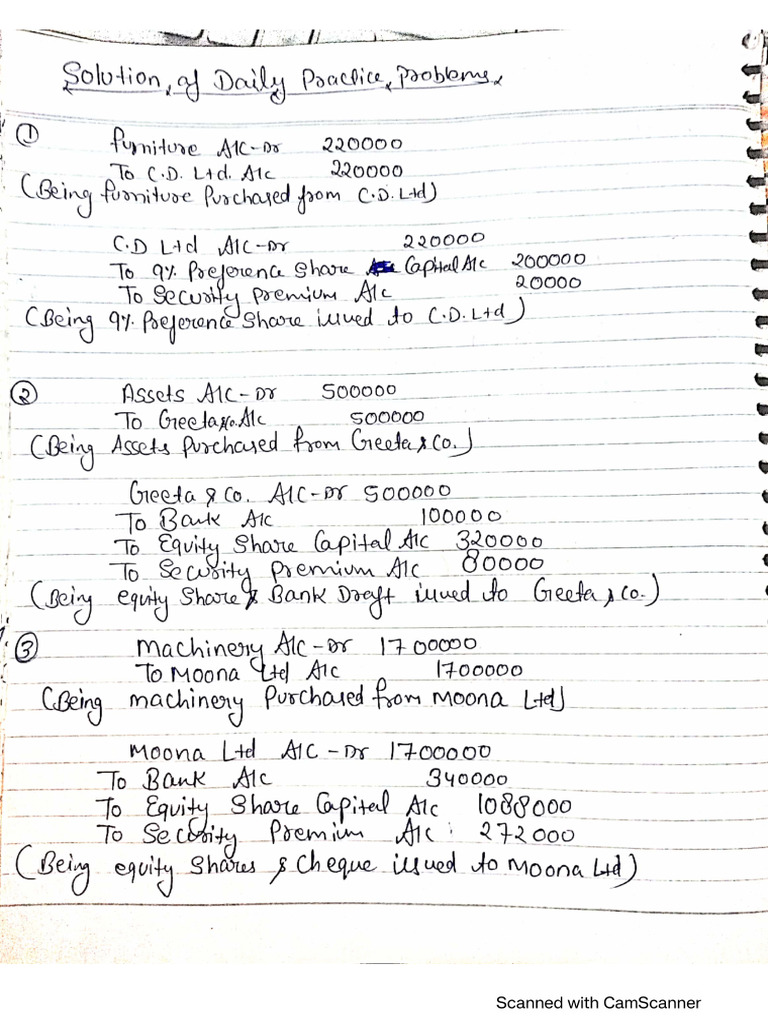 Solution of Daily Practice Problems
① Furniture A/C - Dr 220000
To C.D. Ltd. A/c 220000
(Being furniture Purchased from C.D. Ltd)
C.D Ltd A/C - Dr 220000
To 9% Preference Share Capital A/c 200000
To Security Premium A/c 20000
(Being 9% Preference Share issued to C.D. Ltd)
② Assets A/C - Dr 500000
To Geeta & co. A/c 500000
(Being Assets Purchased from Geeta & Co.)
Geeta & Co. A/C - Dr 500000
To Bank A/c 100000
To Equity Share Capital A/c 320000
To Security Premium A/c 80000
(Being equity Share & Bank Draft issued to Geeta & Co.)
③ Machinery A/C - Dr 1700000
To Moona Ltd A/c 1700000
(Being machinery Purchased from Moona Ltd)
Moona Ltd A/C - Dr 1700000
To Bank A/c 340000
To Equity Share Capital A/c 1088000
To Security Premium A/c 272000
(Being equity Shares & Cheque issued to Moona Ltd)
Scanned with CamScanner